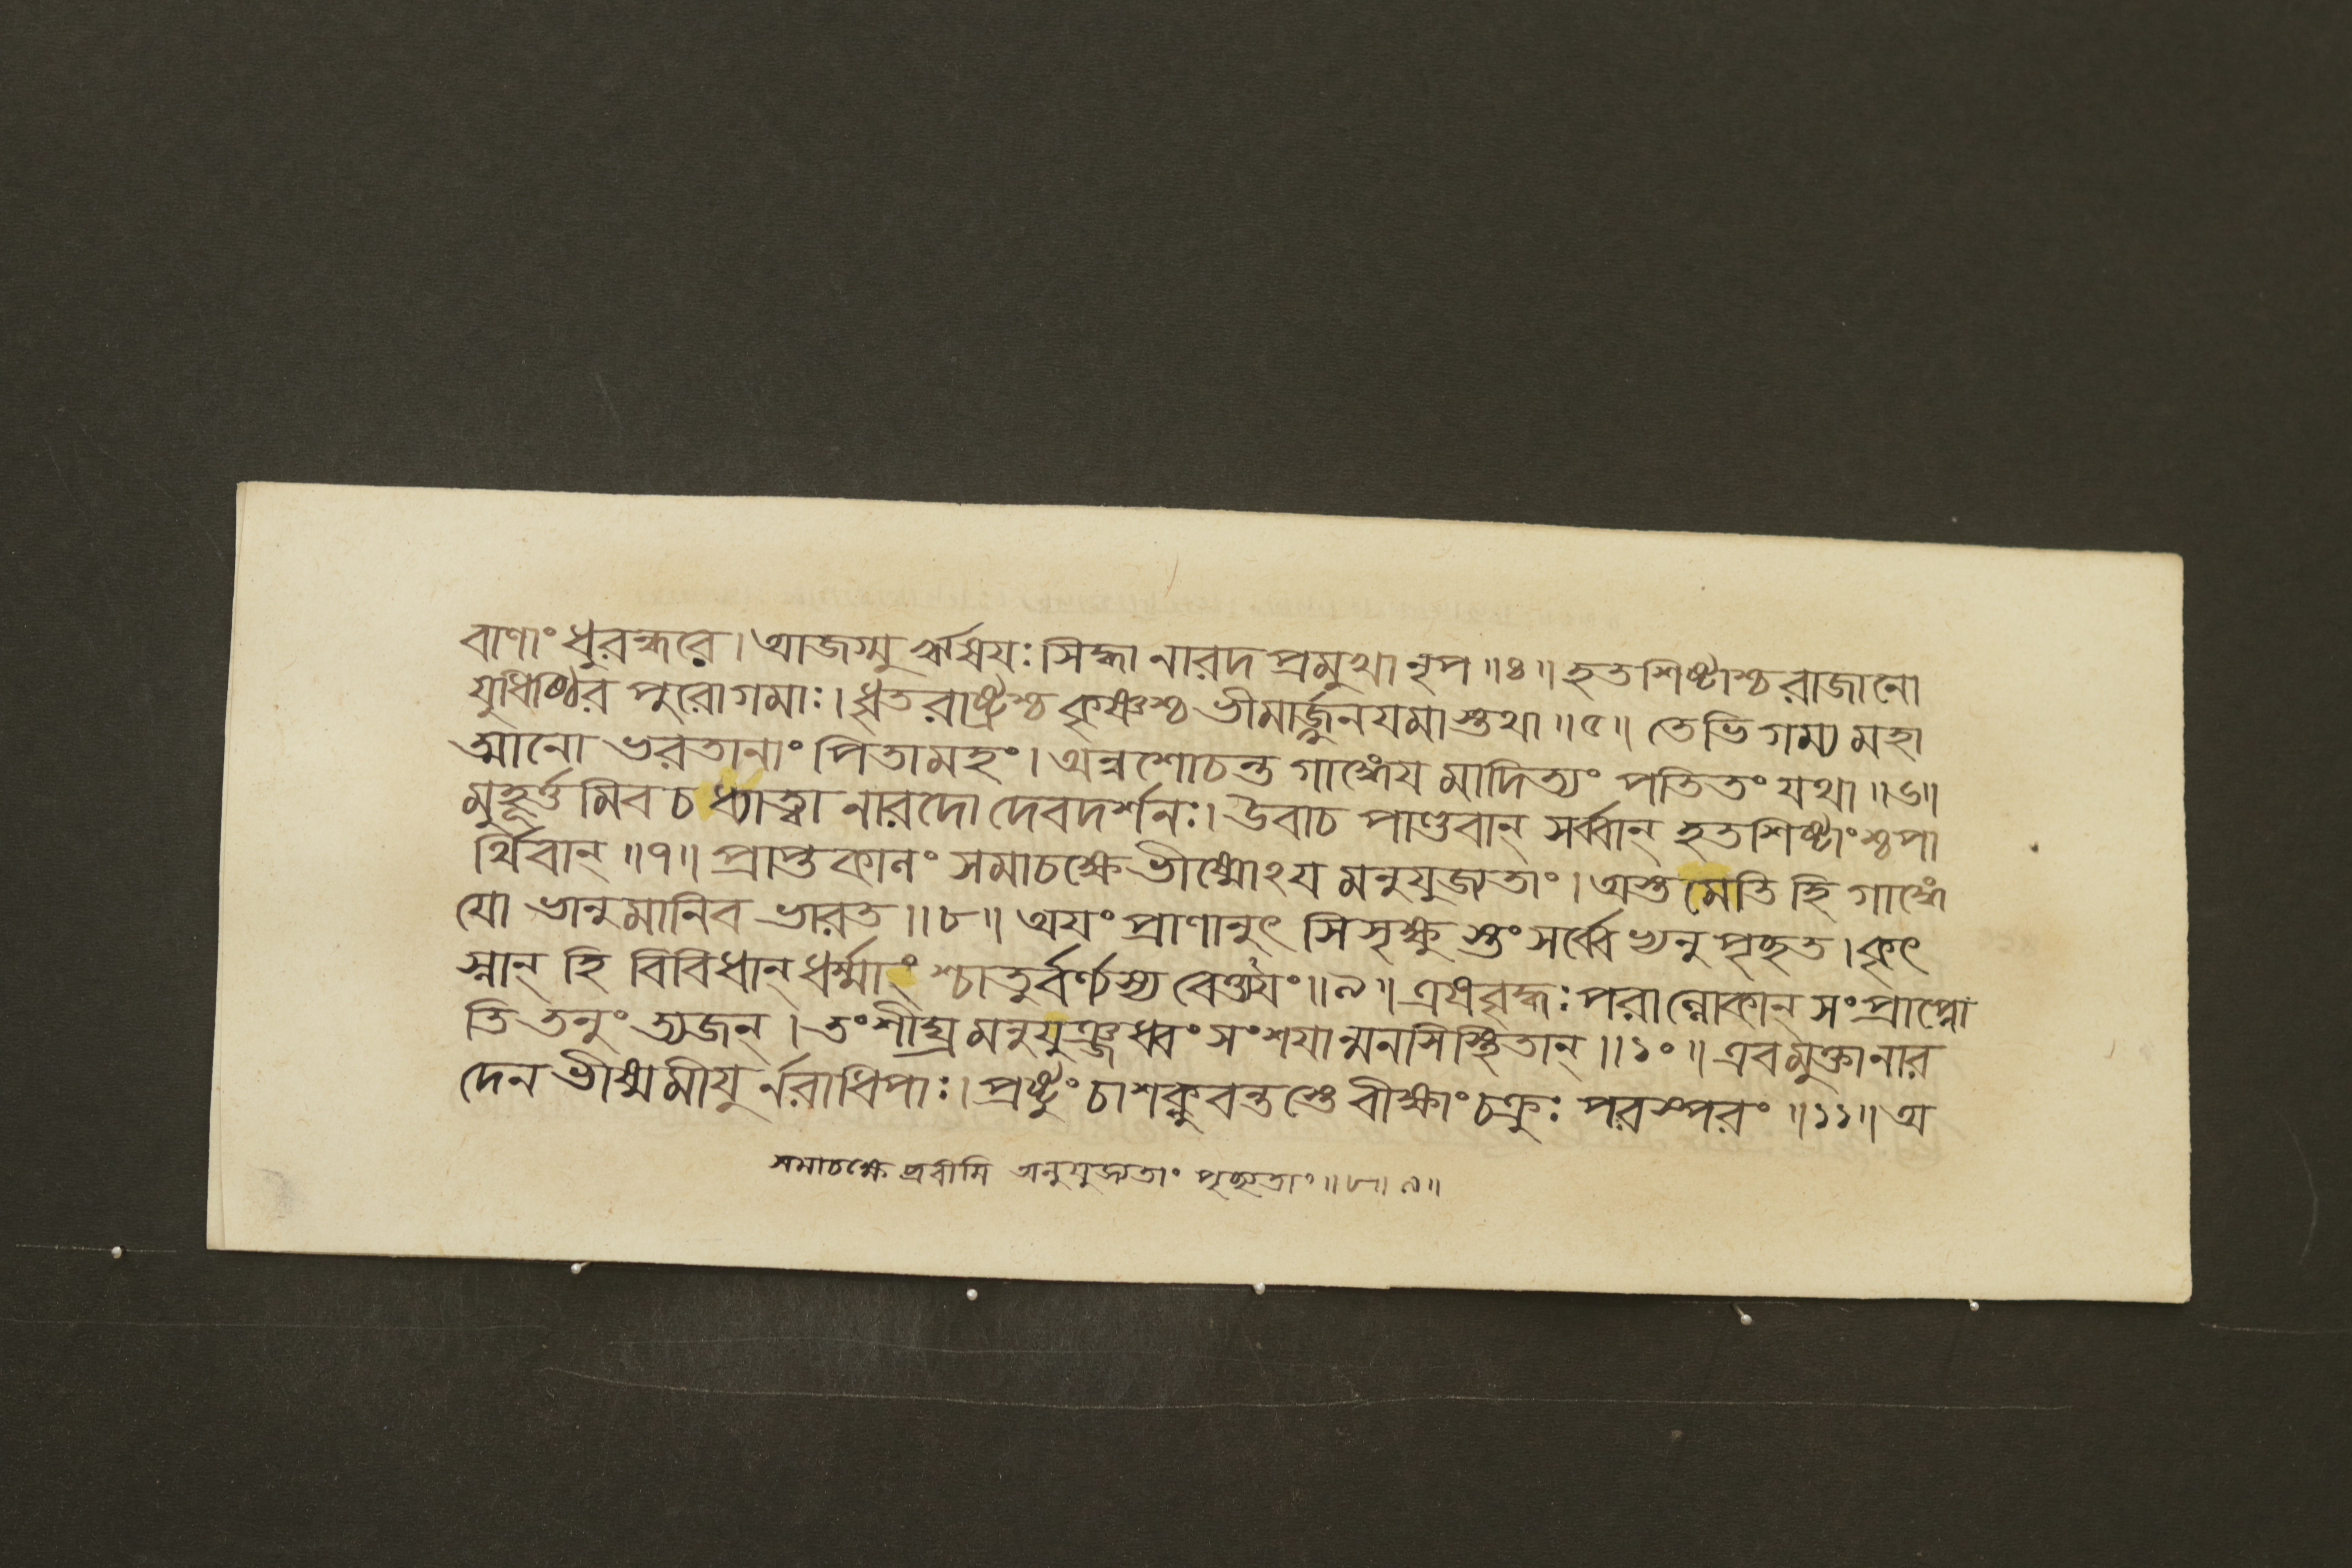 বাণাং ধুরন্ধরে। আজগ্মুরৃষয়ঃ সিদ্ধা নারদপ্রমুখা নৃপ॥৪॥ হতশিষ্টাশ্চ রাজানো
যুধিষ্ঠির পুরোগমাঃ। ধৃতরাষ্ট্রশ্চ কৃষ্ণশ্চ ভীমার্জ্জুনযমাস্তথা॥৫॥ তেভিগম্য মহা
ত্মানো ভরতানাং পিতামহং। অন্বশোচন্ত গাঙ্গেয়মাদিত্যং পতিতং যথা॥৬॥
মুহূর্ত্তমিব চ ধ্যাত্বা নারদো দেবদর্শনঃ। উবাচ পাণ্ডবান্ সর্ব্বান্ হতশিষ্টাংশ্চ পা
র্থিবান্॥৭॥ প্রাপ্তকালং সমাচক্ষে ভীষ্মোঽয়মনুযুজ্যতাং। অস্তমেতি হি গাঙ্গে
যো ভানুমানিব ভারত॥৮॥ অয়ং প্রাণানুৎসিসৃক্ষুস্তং সর্ব্বেভ্যনুপৃচ্ছত। কৃৎ
স্নান্ হি বিবিধান্ ধর্ম্মাংশ্চাতুর্বর্ণ্যস্য বেত্ত্যয়ং॥৯॥ এষ বৃদ্ধঃ পরাল্লোকান্ সংপ্রাপ্নো
তি তনুং ত্যজন্। তং শীঘ্রমনুযুঞ্জধ্বং সংশয়ান্মনসিস্থিতান্॥১০॥ এবমুক্তা নার
দেন ভীষ্মমীয়ুর্নরাধিপাঃ। প্রষ্টুং চাশক্নুবন্তস্তে বীক্ষাং চক্রুঃ পরস্পরং॥১১॥ অ
সমাচক্ষে ব্রবীমি অনুযুজ্যতাং পৃচ্ছ্যতাং॥৮॥৯॥